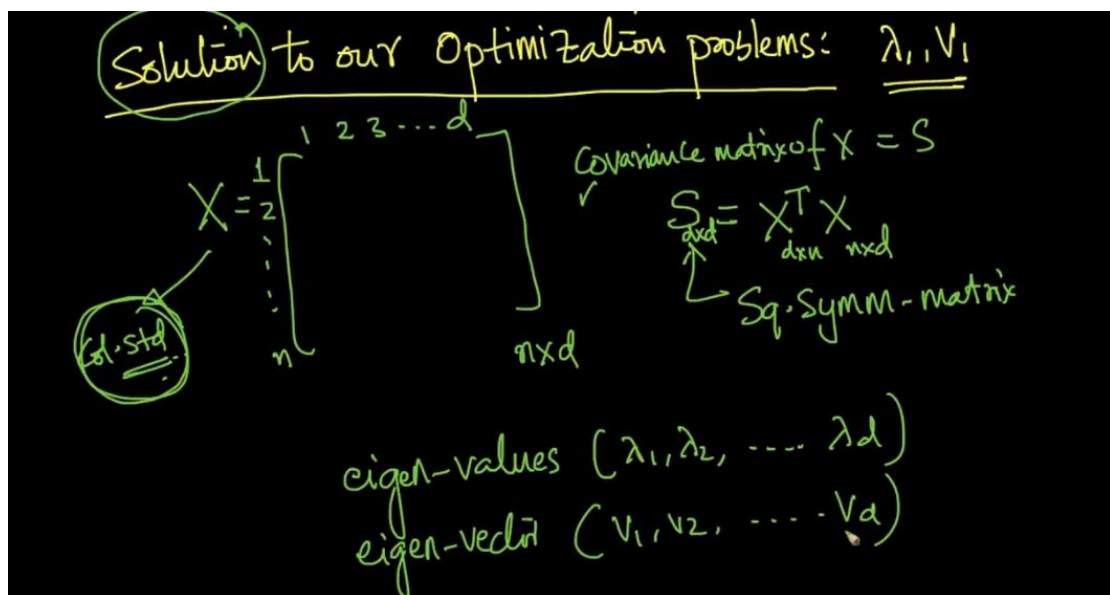 Solution to our Optimization problems: λ₁, V₁
1 2 3 ... d
X = 1
2
n
n×d
Col. std
Covariance matrix of X = S
S d×d = Xᵀ d×n X n×d
Sq. Symm-matrix
eigen-values (λ₁, λ₂, .... λd)
eigen-vector (V₁, V2, ..... Vd)